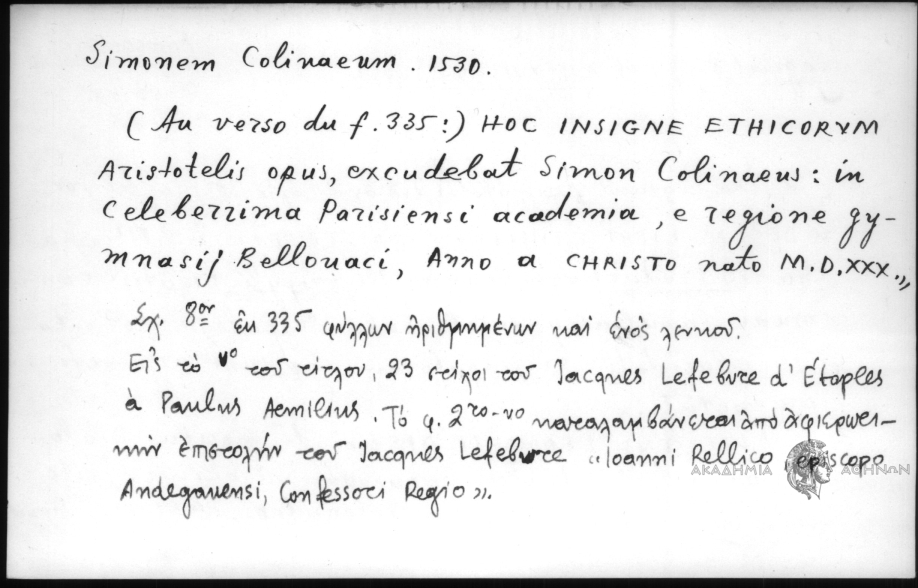 Simonem Colinaeum. 1530.
(Au verso du f. 335:) HOC INSIGNE ETHICORVM
Aristotelis opus, excudebat Simon Colinaeus: in
Celeberrima Parisiensi academia, e regione gy-
mnasij Bellouaci, Anno a CHRISTO nato M.D.XXX.»
Σχ. 8ον ἐκ 335 φύλλων ἠριθμημένων καὶ ἑνὸς λευκοῦ.
Εἰς τὸ vo τοῦ τίτλου, 23 στίχοι τοῦ Jacques Lefebvre d'Étaples
à Paulus Aemilius. Τὸ φ. 2ro-vo καταλαμβάνεται ἀπὸ ἀφιερωτι-
κὴν ἐπιστολὴν τοῦ Jacques Lefebvre «Ioanni Rellico, episcopo
Andegauensi, Confessori Regio».
ΑΚΑΔΗΜΙΑ ΑΘΗΝΩΝ